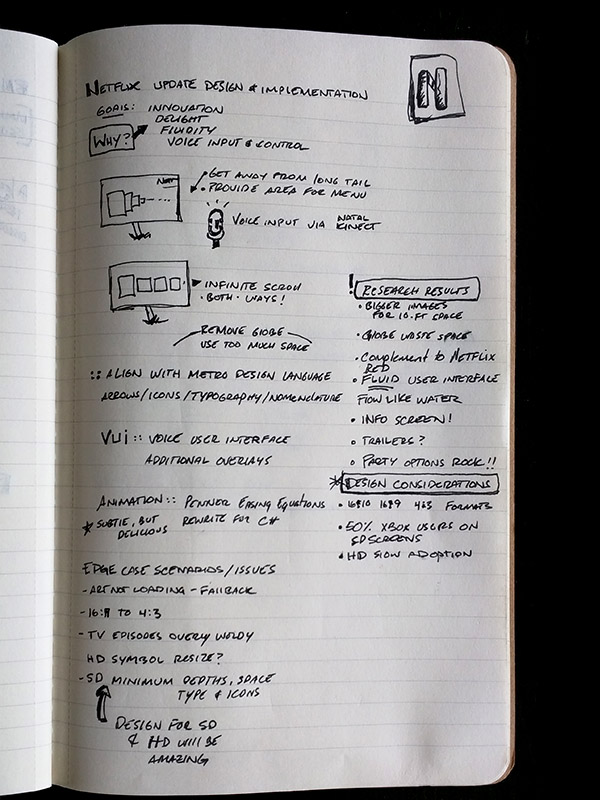 NETFLIX UPDATE DESIGN & IMPLEMENTATION
N
GOALS: INNOVATION
DELIGHT
FLUIDITY
WHY? VOICE INPUT & CONTROL
• GET AWAY FROM LONG TAIL
• PROVIDE AREA FOR MENU
VOICE INPUT VIA NATAL
KINECT
• INFINITE SCROLL
• BOTH WAYS!
REMOVE GLOBE
USE TOO MUCH SPACE
:: ALIGN WITH METRO DESIGN LANGUAGE
ARROWS/ICONS/TYPOGRAPHY/NOMENCLATURE
VUI :: VOICE USER INTERFACE
ADDITIONAL OVERLAYS
ANIMATION:: PENNER EASING EQUATIONS
* SUBTLE, BUT REWRITE FOR C#
DELICIOUS
EDGE CASE SCENARIOS/ISSUES
- ART NOT LOADING - FALLBACK
- 16:9 TO 4:3
- TV EPISODES OVERLY WORDY
HD SYMBOL RESIZE?
- SD MINIMUM DEPTHS, SPACE
TYPE & ICONS
DESIGN FOR SD
& HD WILL BE
AMAZING
! RESEARCH RESULTS
• BIGGER IMAGES
FOR 10-FT SPACE
• GLOBE WASTE SPACE
• COMPLEMENT TO NETFLIX
RED
• FLUID USER INTERFACE
FLOW LIKE WATER
• INFO SCREEN!
• TRAILERS?
• PARTY OPTIONS ROCK!!
* DESIGN CONSIDERATIONS
• 16x10 16x9 4x3 FORMATS
• 50% XBOX USERS ON
SD SCREENS
• HD SLOW ADOPTION